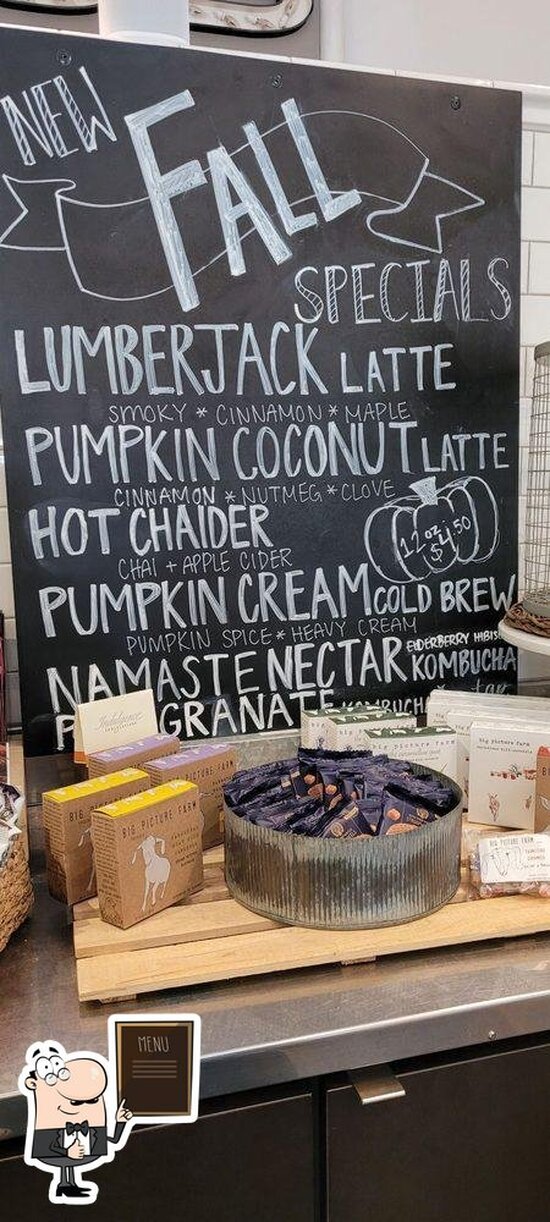 NEW
FALL
SPECIALS
LUMBERJACK LATTE
SMOKY * CINNAMON * MAPLE
PUMPKIN COCONUT LATTE
CINNAMON * NUTMEG * CLOVE
HOT CHAIDER
12 oz
$4.50
CHAI + APPLE CIDER
PUMPKIN CREAM COLD BREW
PUMPKIN SPICE * HEAVY CREAM
NAMASTE NECTAR ELDERBERRY
KOMBUCHA
Indulgence
big picture farm
big picture farm
big picture farm
BIG PICTURE FARM
BIG PICTURE FARM
BIG PICTURE FARM
MENU